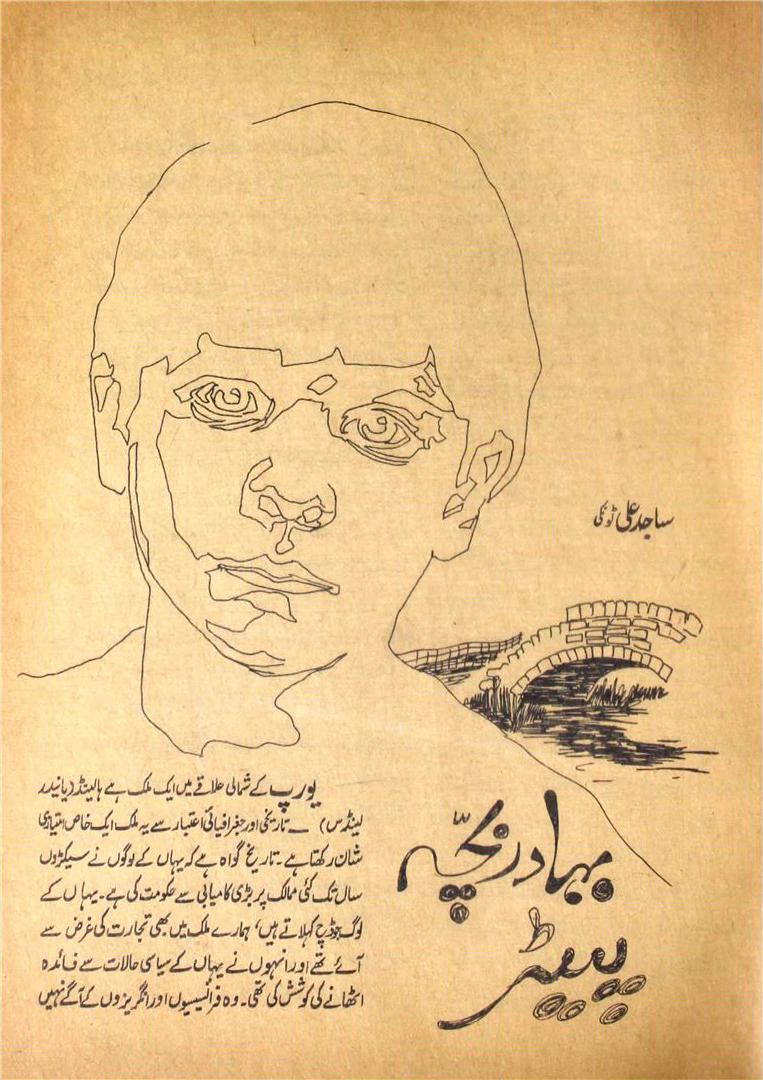 ساجد علی ٹونکی
بہادر بچّہ
پیٹر
یورپ کے شمالی علاقے میں ایک ملک ہے ہالینڈ (یا نیدر
لینڈس) ـ تاریخی اور جغرافیائی اعتبار سے یہ ملک ایک خاص امتیازی
شان رکھتا ہے۔ تاریخ گواہ ہے کہ یہاں کے لوگوں نے سیکڑوں
سال تک کئی ممالک پر بڑی کامیابی سے حکومت کی ہے۔ یہاں کے
لوگ جو ڈچ کہلاتے ہیں، ہمارے ملک میں بھی تجارت کی غرض سے
آئے تھے اور انہوں نے یہاں کے سیاسی حالات سے فائدہ
اٹھانے کی کوشش کی تھی۔ وہ فرانسیسیوں اور انگریزوں کے آگے نہیں